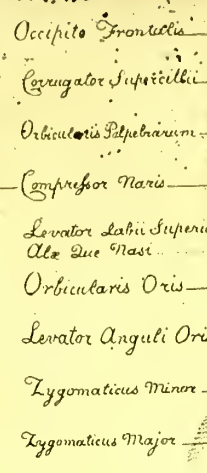 Occipito Frontalis
Corrugator Supercillii
Orbicularis Palpebrarum
Compressor Naris
Levator Labii Superio
Alæ Que Nasi
Orbicularis Oris
Levator Anguli Oris
Zygomaticus Minor
Zygomaticus Major